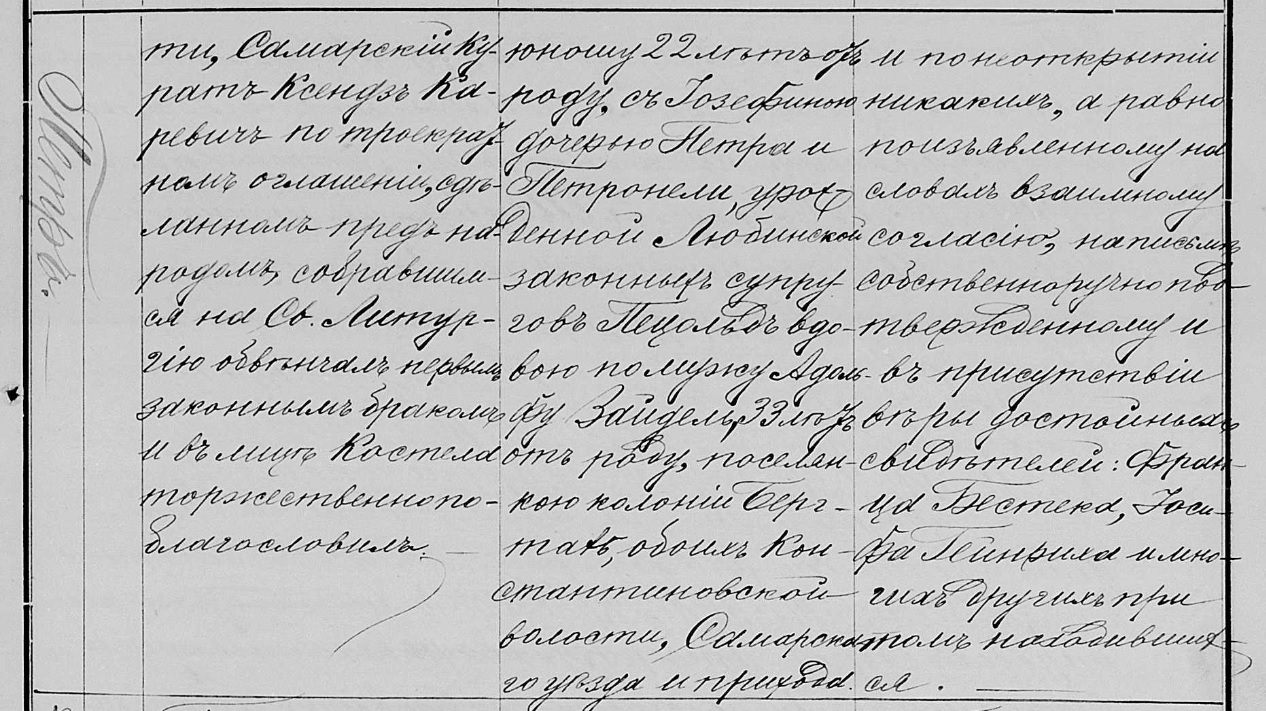 ти, Самарскій Ку-
ратъ Ксендзъ Ка-
ревичъ по троекрат-
номъ оглашеніи, сдѣ-
ланномъ предъ на-
родомъ, собравшим-
ся на Св. Литур-
гію обвѣнчалъ первымъ
законнымъ бракомъ
и въ лицѣ Костела
торжественно по-
благословилъ.
юношу 22 лѣтъ отъ
роду, съ Іозефиною
дочерью Петра и
Петронели, урож-
денной Любинской
законныхъ супру-
говъ Пецольдъ вдо-
вою по мужу Адоль-
фу Зайдель, 33 лѣтъ
отъ роду, поселян-
кою колоній Берг-
таль, обоихъ Кон-
стантиновской
волости, Самарска-
го уѣзда и прихода.
и по неоткрытіи
никакихъ, а равно
по изъявленному на
словахъ взаимному
согласію, на письмѣ
собственноручно под-
твержденному и
въ присутствіи
вѣры достойныхъ
свидѣтелей: Фран-
ца Бестека, Іоси-
фа и мно-
гихъ другихъ при
томъ находивших-
ся.